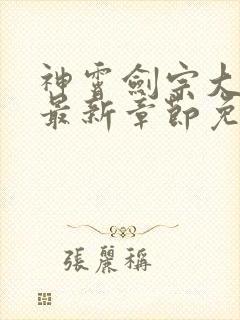 神霄劍宗大
最新章節免
張麗稱